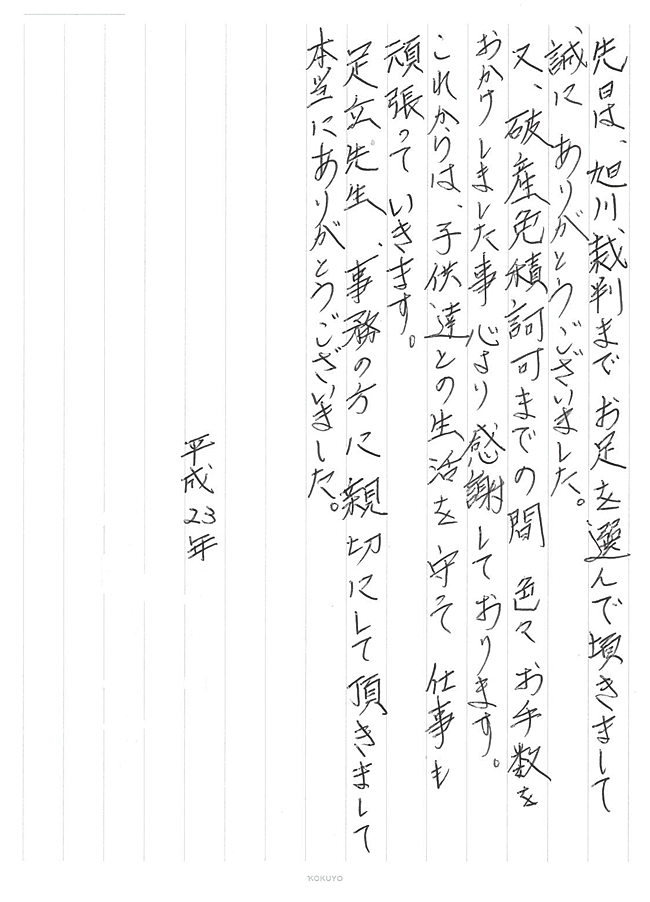 先日は、旭川裁判まで お足を選んで頃きまして
誠に ありがとうございました。
又、破産免積許可までの間 色々 お手数を
おかけしました事 心より 感謝しております。
これからは、子供達との生活を 守って 仕事も
頑張って いきます。
足立先生、事務の方に 親切にして 頂きまして
本当にありがとうございました。
平成23年
KOKUYO